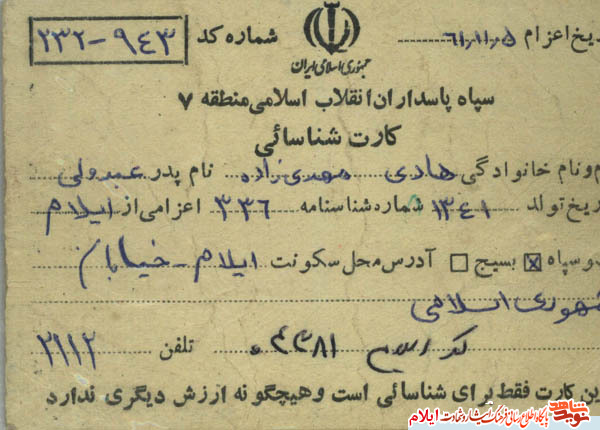 ریخ اعزام ۶۱/۱۱/۵ شماره کد ۲۳۲-۹۴۳
جمهوری اسلامی ایران
سپاه پاسداران انقلاب اسلامی منطقه ۷
کارت شناسائی
م و نام خانوادگی هادی مهدی زاده نام پدر عبدولی
ریخ تولد ۱۳۴۱ شماره شناسنامه ۳۳۶ اعزامی از ایلام
و سپاه ☒ بسیج ☐ آدرس محل سکونت ایلام - خیابان
جمهوری اسلامی
تلفن ۲۹۱۲
ین کارت فقط برای شناسائی است و هیچگونه ارزش دیگری ندارد
نوید شاهد پایگاه اطلاع رسانی فرهنگ ایثار و شهادت ایلام